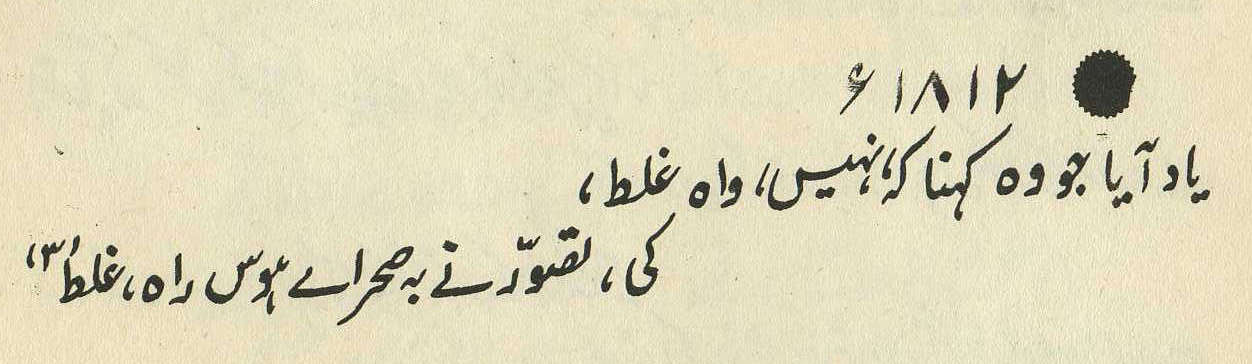 ۱۸۱۲ء
یاد آیا جو وہ کہنا کہ، نہیں، واہ غلط،
کی، تصوّر نے بہ صحراے ہوس راہ، غلط(۳)